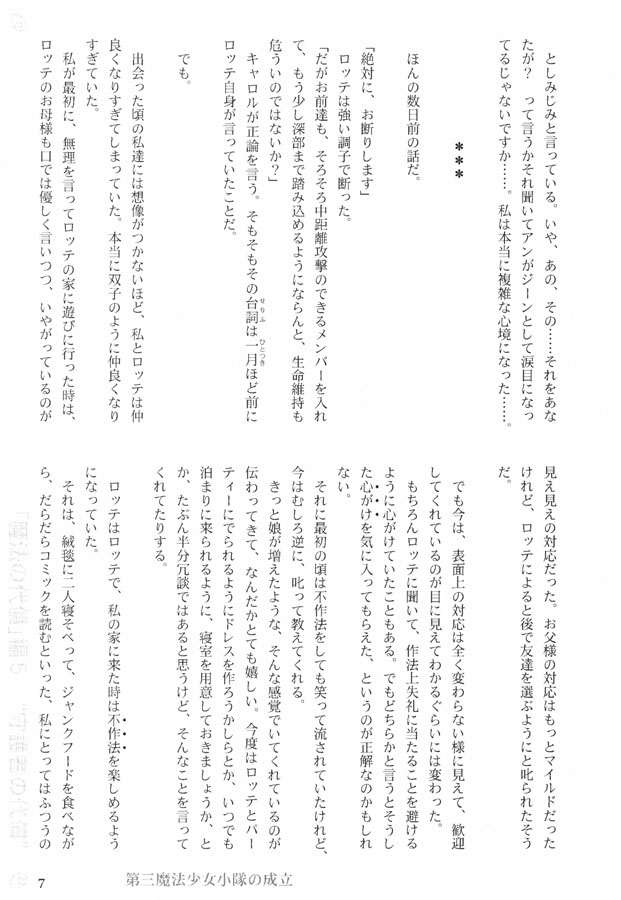 としみじみと言っている。いや、あの、その……それをあな
たが？　って言うかそれ聞いてアンがジーンとして涙目になっ
てるじゃないですか……。私は本当に複雑な心境になった……。
＊＊＊
ほんの数日前の話だ。
「絶対に、お断りします」
ロッテは強い調子で断った。
「だがお前達も、そろそろ中距離攻撃のできるメンバーを入れ
て、もう少し深部まで踏み込めるようにならんと、生命維持も
危ういのではないか？」
キャロルが正論を言う。そもそもその台詞は一月ほど前に
せりふ
ひとつき
ロッテ自身が言っていたことだ。
でも。
出会った頃の私達には想像がつかないほど、私とロッテは仲
良くなりすぎてしまっていた。本当に双子のように仲良くなり
すぎていた。
私が最初に、無理を言ってロッテの家に遊びに行った時は、
ロッテのお母様も口では優しく言いつつ、いやがっているのが
見え見えの対応だった。お父様の対応はもっとマイルドだった
けれど、ロッテによると後で友達を選ぶようにと叱られたそう
だ。
でも今は、表面上の対応は全く変わらない様に見えて、歓迎
してくれているのが目に見えてわかるぐらいには変わった。
もちろんロッテに聞いて、作法上失礼に当たることを避ける
ように心がけていたこともある。でもどちらかと言うとそうし
た心がけを気に入ってもらえた、というのが正解なのかもしれ
ない。
それに最初の頃は不作法をしても笑って流されていたけれど、
今はむしろ逆に、叱って教えてくれる。
きっと娘が増えたような、そんな感覚でいてくれているのが
伝わってきて、なんだかとても嬉しい。今度はロッテとパー
ティーにでられるようにドレスを作ろうかしらとか、いつでも
泊まりに来られるように、寝室を用意しておきましょうか、と
か、たぶん半分冗談ではあると思うけど、そんなことを言って
くれてたりする。
ロッテはロッテで、私の家に来た時は不作法を楽しめるよう
になっていた。
それは、絨毯に二人寝そべって、ジャンクフードを食べなが
ら、だらだらコミックを読むといった、私にとってはふつうの
7
第三魔法少女小隊の成立